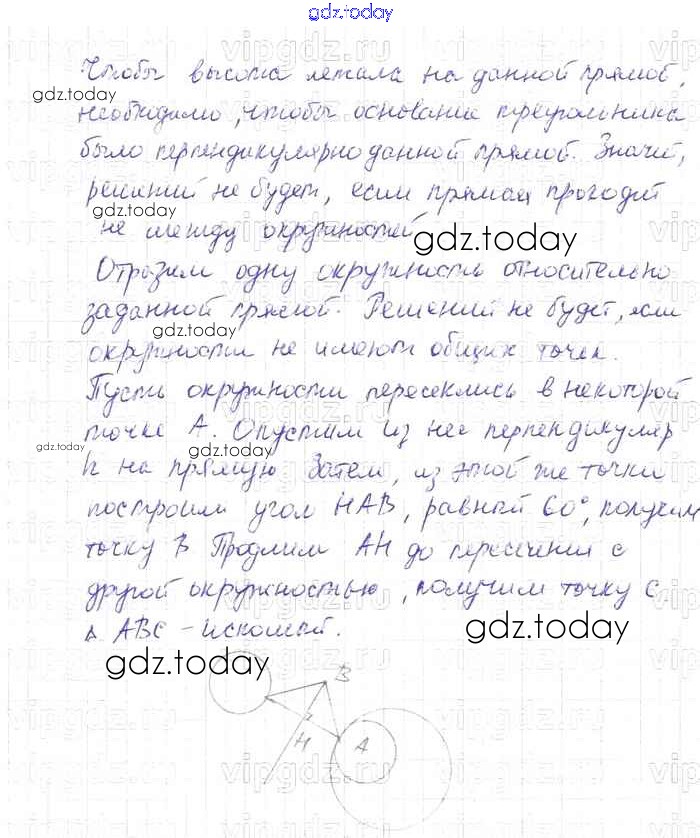 gdz.today
Чтобы высота лежала на данной прямой,
gdz.today
необходимо, чтобы основание треугольника
было перпендикулярно данной прямой. Значит,
решений не будет, если прямая проходит
gdz.today
не между окружностей.
gdz.today
Отразим одну окружность относительно
заданной прямой. Решений не будет, если
gdz.today
окружности не имеют общих точек.
Пусть окружности пересеклись в некоторой
точке А. Опустим из нее перпендикуляр
gdz.today
h на прямую Затем, из этой же точки
построим угол НАВ, равный 60°, получим
точку В Продлим АН до пересечения с
другой окружностью, получим точку С
Δ АВС – искомый.
gdz.today
gdz.today
В
Н
А
gdz.today
vipgdz.ru